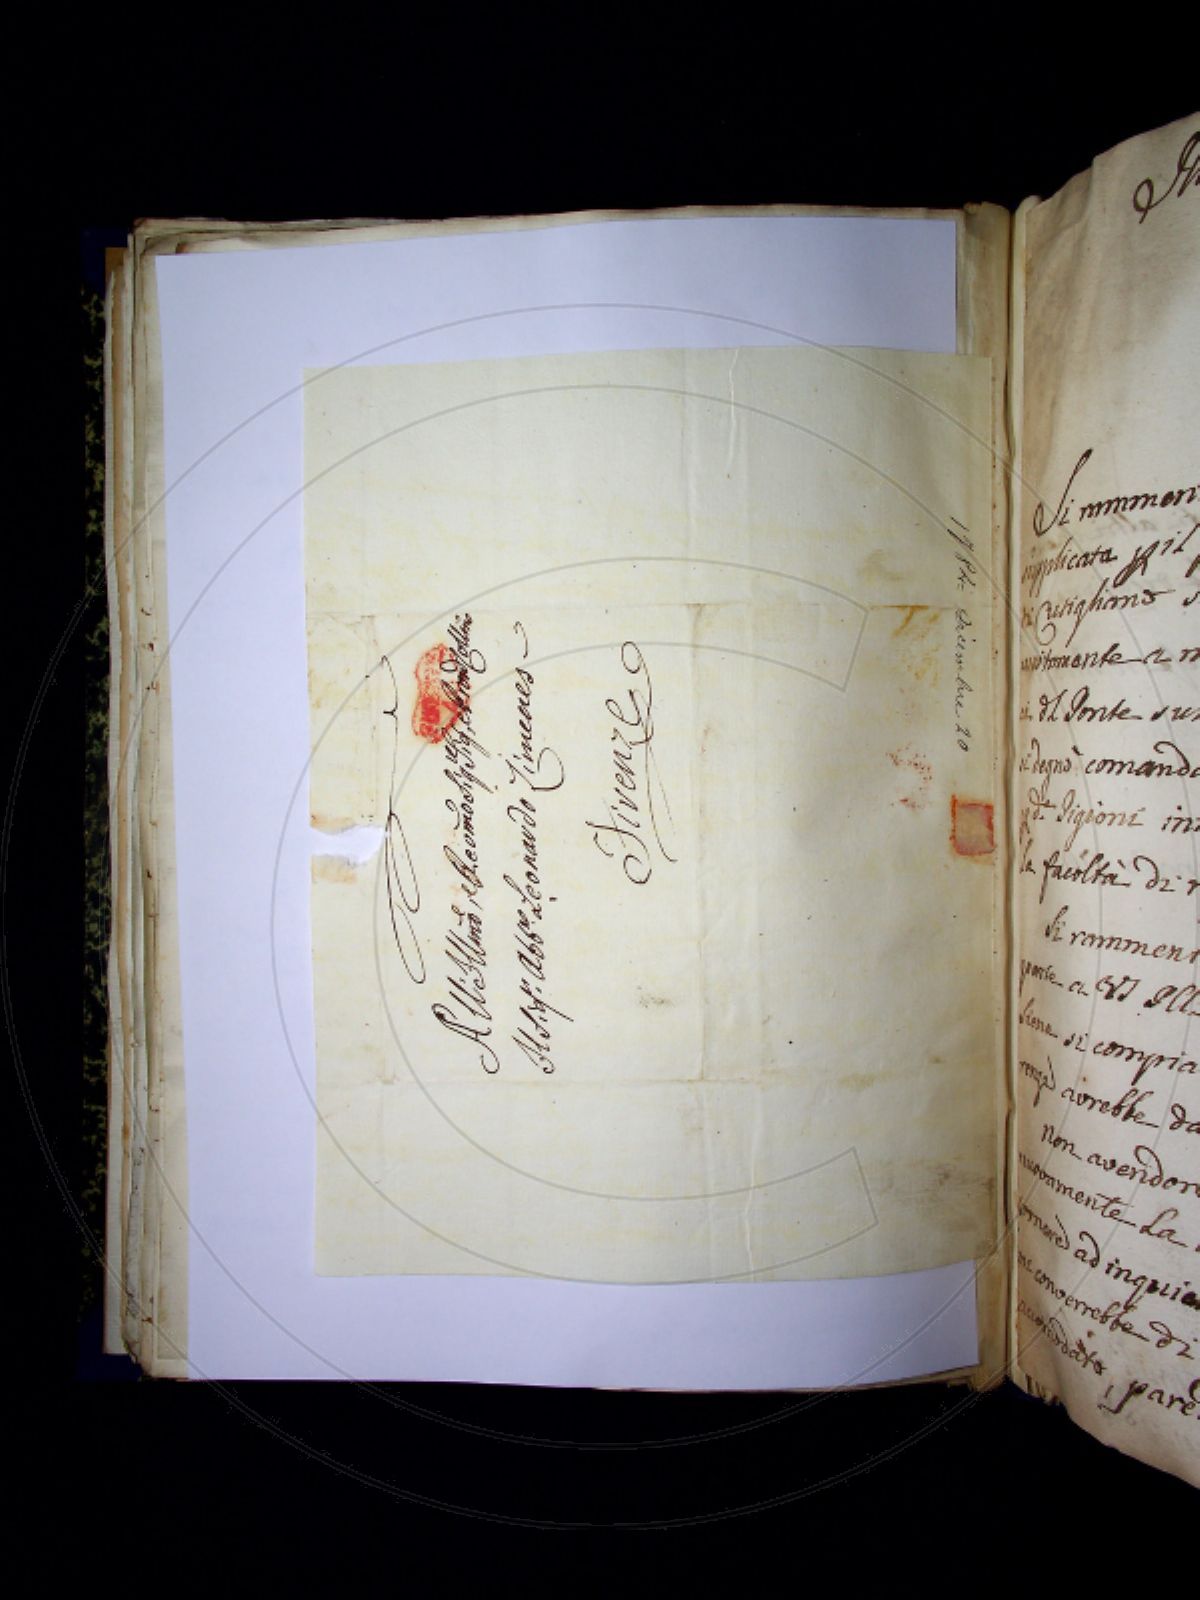 All'Illmo, e Rcomo Sig. Sig. Pron Colmo
Il Sig.r Abb.e Leonardo Ximenes
Firenze
1784: Decembre 20
Si rammen
supplicata p il
di Cutigliano s
unitamente a m
dl Ponte su
si degnò comanda
Pigioni in
la facoltà di r
Si rammen
a VS Ill
Siena si compia
avrebbe da
Non avendo
nuovamente La
ad inquie
converrebbe di
accordato, pare